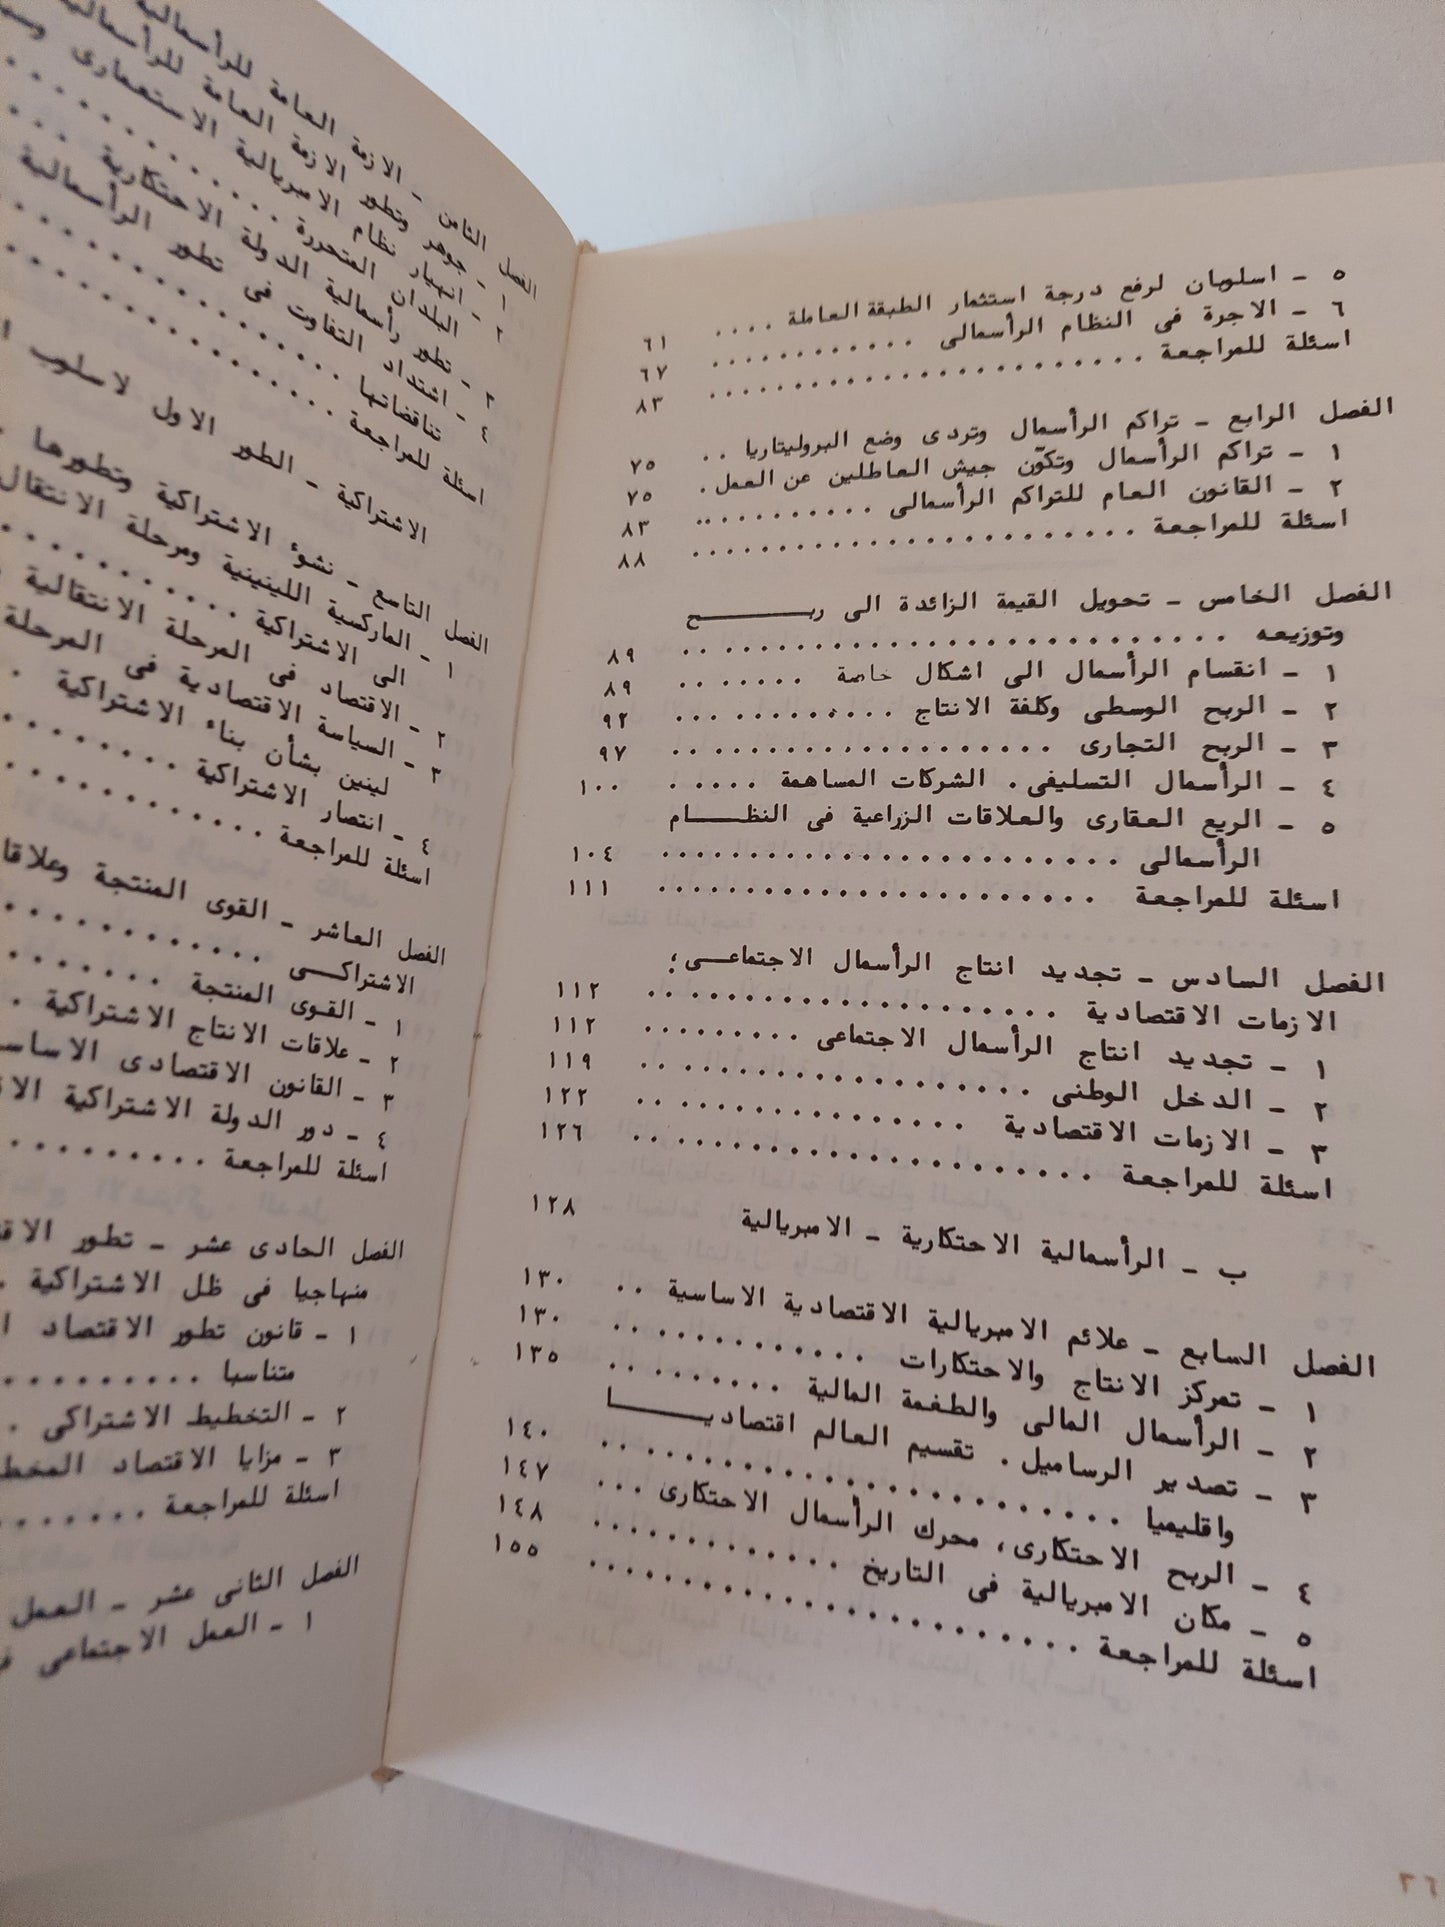 ٥ - اسلوبان لرفع درجة استثمار الطبقة العاملة .... ٦١
٦ - الاجرة فى النظام الرأسمالى ............ ٦٧
اسئلة للمراجعة ........................ ٨٣
الفصل الرابع - تراكم الرأسمال وتردى وضع البروليتاريا .. ٧٥
١ - تراكم الرأسمال وتكوّن جيش العاطلين عن العمل . ٧٥
٢ - القانون العام للتراكم الرأسمالى ............ ٨٣
اسئلة للمراجعة ........................ ٨٨
الفصل الخامس - تحويل القيمة الزائدة الى ربـــــح
وتوزيعه ........................ ٨٩
١ - انقسام الرأسمال الى اشكال خاصة ....... ٨٩
٢ - الربح الوسطى وكلفة الانتاج ............ ٩٢
٣ - الربح التجارى .................. ٩٧
٤ - الرأسمال التسليفى . الشركات المساهمة ...... ١٠٠
٥ - الريع العقارى والعلاقات الزراعية فى النظـــام
الرأسمالى ...................... ١٠٤
اسئلة للمراجعة ...................... ١١١
الفصل السادس - تجديد انتاج الرأسمال الاجتماعـــى؛
الازمات الاقتصادية .................... ١١٢
١ - تجديد انتاج الرأسمال الاجتماعى ......... ١١٢
٢ - الدخل الوطنى .................. ١١٩
٣ - الازمات الاقتصادية ................ ١٢٢
اسئلة للمراجعة ...................... ١٢٦
ب - الرأسمالية الاحتكارية - الامبريالية ١٢٨
الفصل السابع - علائم الامبريالية الاقتصادية الاساسية .. ١٣٠
١ - تمركز الانتاج والاحتكارات ............ ١٣٠
٢ - الرأسمال المالى والطغمة المالية ......... ١٣٥
٣ - تصدير الرساميل . تقسيم العالم اقتصاديـــــا
واقليميا ........................ ١٤٠
٤ - الربح الاحتكارى، محرك الرأسمال الاحتكارى ... ١٤٧
٥ - مكان الامبريالية فى التاريخ ............ ١٤٨
اسئلة للمراجعة ........................ ١٥٥
الفصل الثامن - الازمة العامة للرأسمالية
١ - جوهر وتطور الازمة العامة للرأسمالية
٢ - انهيار نظام الامبريالية الاستعمارى
البلدان المتحررة ............
٣ - تطور رأسمالية الدولة الاحتكارية ...
٤ - اشتداد التفاوت فى تطور الرأسمالية
تناقضاتها ............
اسئلة للمراجعة ............
الاشتراكية - الطور الاول لاسلوب
الفصل التاسع - نشوء الاشتراكية وتطورها
١ - الماركسية اللينينية ومرحلة الانتقال
الى الاشتراكية ............
٢ - الاقتصاد فى المرحلة الانتقالية
٣ - السياسة الاقتصادية فى المرحلة
لينين بشأن بناء الاشتراكية .
٤ - انتصار الاشتراكية ........
اسئلة للمراجعة ............
الفصل العاشر - القوى المنتجة
الاشتراكــى ............
١ - القوى المنتجة ........
٢ - علاقات الانتاج الاشتراكية .
٣ - القانون الاقتصادى
٤ - دور الدولة الاشتراكية
اسئلة للمراجعة .........
الفصل الحادى عشر - تطور
منهاجيا فى ظل الاشتراكية .
١ - قانون تطور الاقتصاد
متناسبا ..........
٢ - التخطيط الاشتراكى .
٣ - مزايا الاقتصاد
اسئلة للمراجعة .......
الفصل الثانى عشر - العمل
١ - العمل الاجتماعى